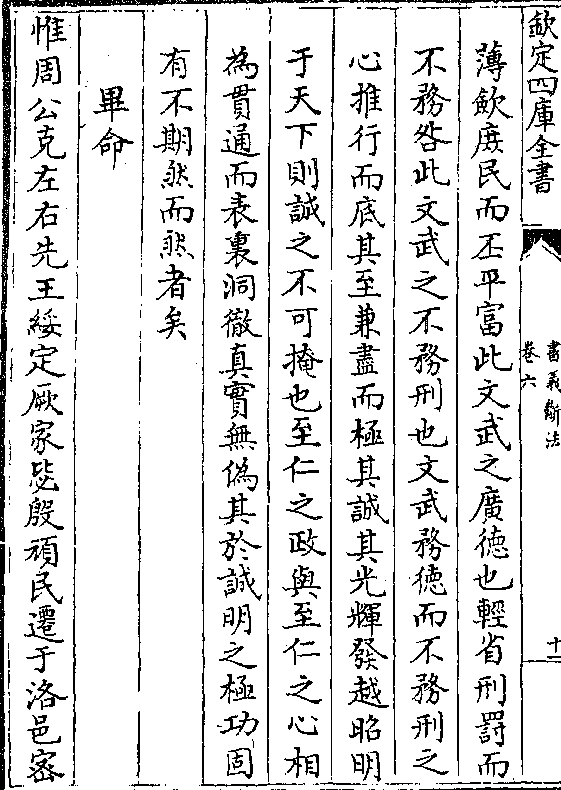 欽定四庫全書
書義斷法
卷六
十二
薄歛庻民而丕平富此文武之廣徳也輕省刑罰而
不務咎此文武之不務刑也文武務徳而不務刑之
心推行而底其至兼盡而極其誠其光輝發越昭明
于天下則誠之不可掩也至仁之政與至仁之心相
為貫通而表裏洞徹真實無偽其於誠明之極功固
有不期然而然者矣
畢命
惟周公克左右先王綏定厥家毖殷頑民遷于洛邑密